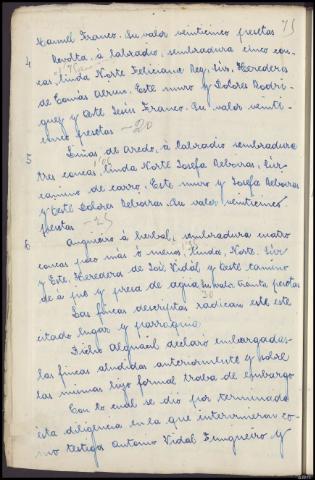 75
Manuel Franco. Su valor veinticinco pesetas
4 Revolta, á labradio, sembradura cinco con-
cas, linda Norte Feliciano Rey, Sur, Herederos
de Tomás Abrun. Este muro y Dolores Rodri-
guez y Oeste Jesús Franco. Su valor veinti-
cinco pesetas —20
5 Liñas de Aredo, á labradio sembradura
tres concas, linda Norte Josefa Reboras, Sur
camino de carro, Este muro y Josefa Reboras
y Oeste Dolores Reboras. Su valor veinticinco
pesetas —25
6 Angueiro á herbal, sembradura cuatro
concas poco mas ó menos, linda, Norte, Sur
y Este, Herederos de José Vidal y Oeste camino
de á pie y presa de agua. Su valor treinta pesetas
30
Las fincas descriptas radican en este
citado lugar y parroquia.
Dicho Alguacil declaro embargadas
las fincas aludidas anteriormente y sobre
las mismas bajo formal traba de embargo
Con lo cual se dió por terminada
esta diligencia en la que intervinieron co-
mo testigos Antonio Vidal Fungueiro y